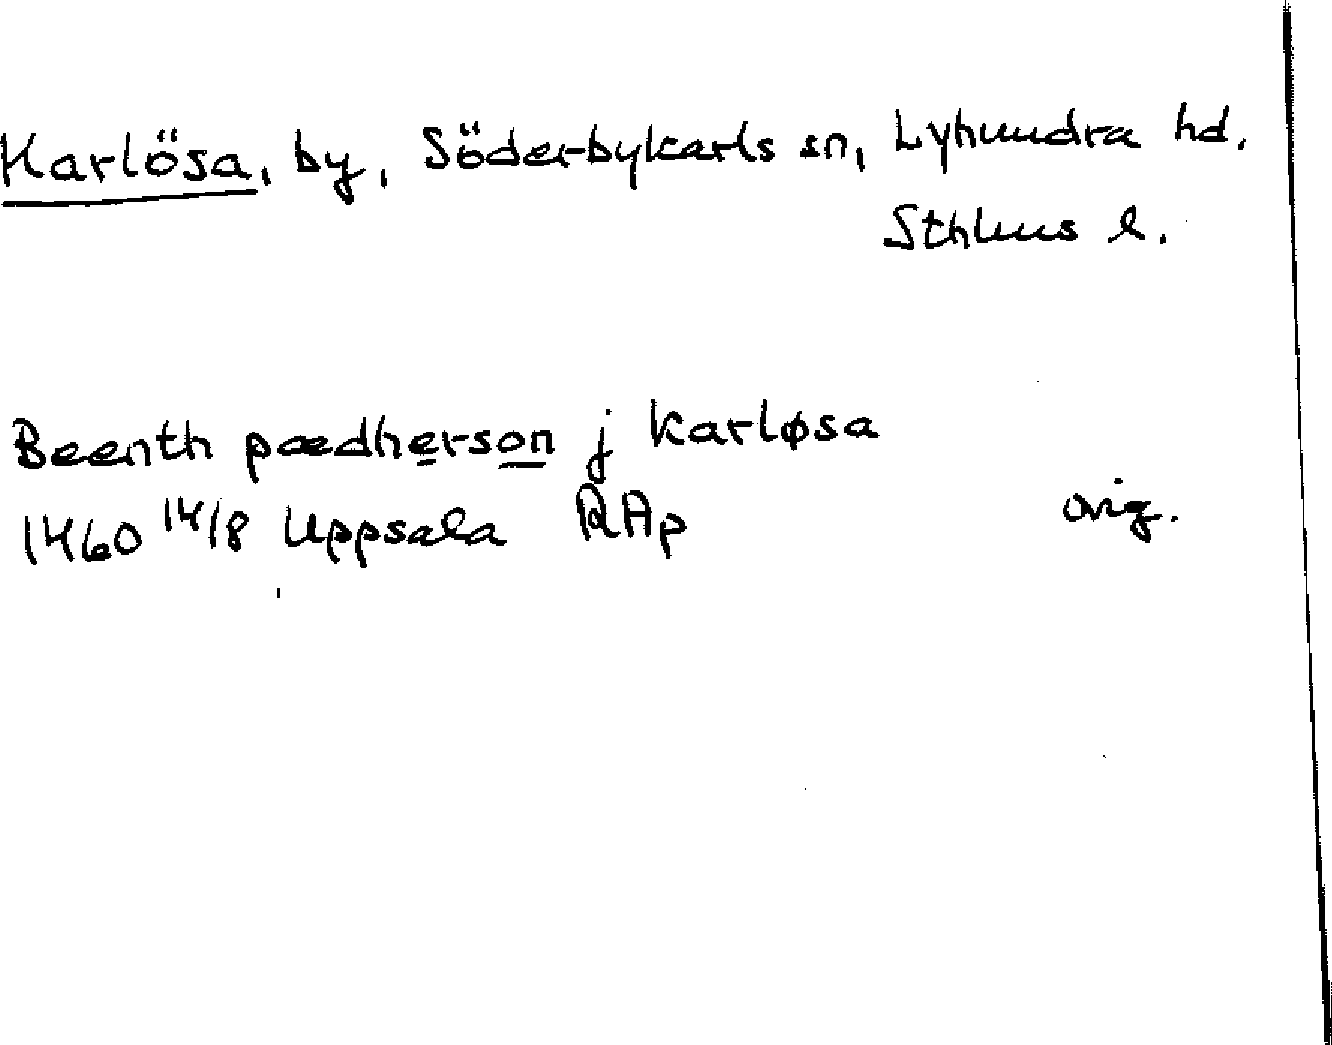 Karlösa, by, Söderbykarls sn, Lyhundra hd.
Sthlms l.
Beenth pædherson j karløsa
1460 14/8 Uppsala RAp orig.